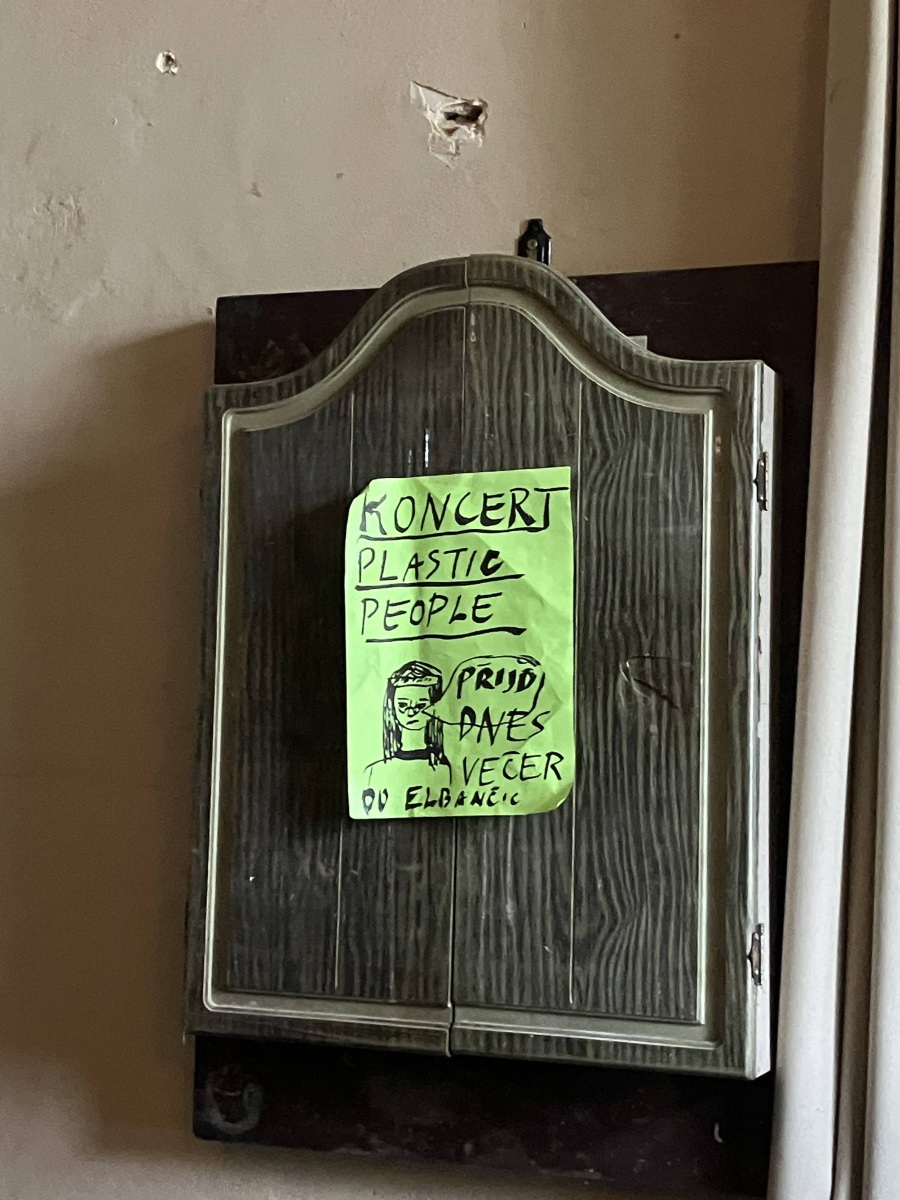 KONCERT
PLASTIC
PEOPLE
PŘIJĎ
DNES
VEČER
DO ELBANČIC